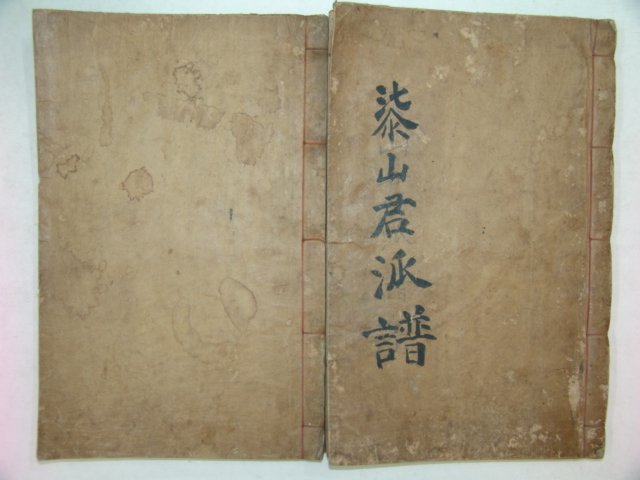 柒山君派譜